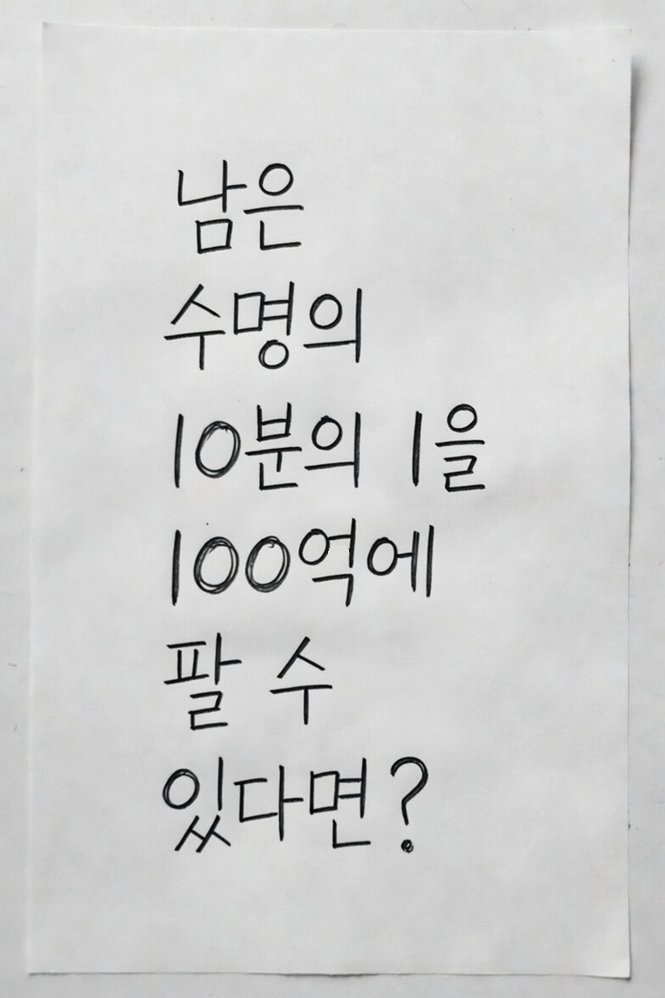 남은
수명의
10분의 1을
100억에
팔 수
있다면?